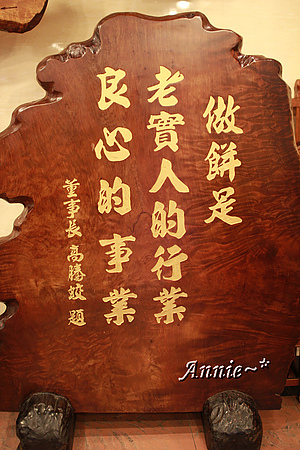 做餅足
老實人的行業
良心的事業
董事長 高勝鉸 題
Annie~*